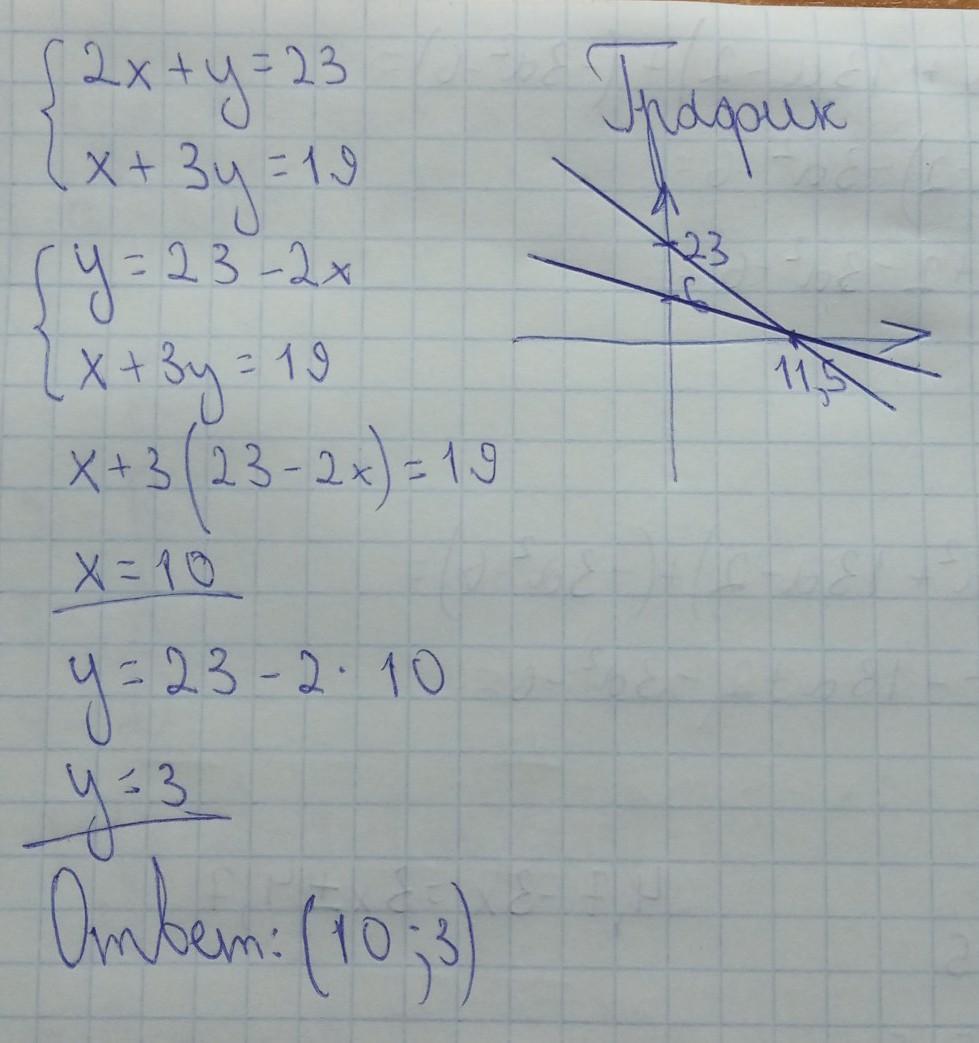 2x + y = 23
x + 3y = 19
y = 23 - 2x
x + 3y = 19
x + 3(23 - 2x) = 19
x = 10
y = 23 - 2 · 10
y = 3
Ответ: (10 ; 3)
График
23
6
11,5